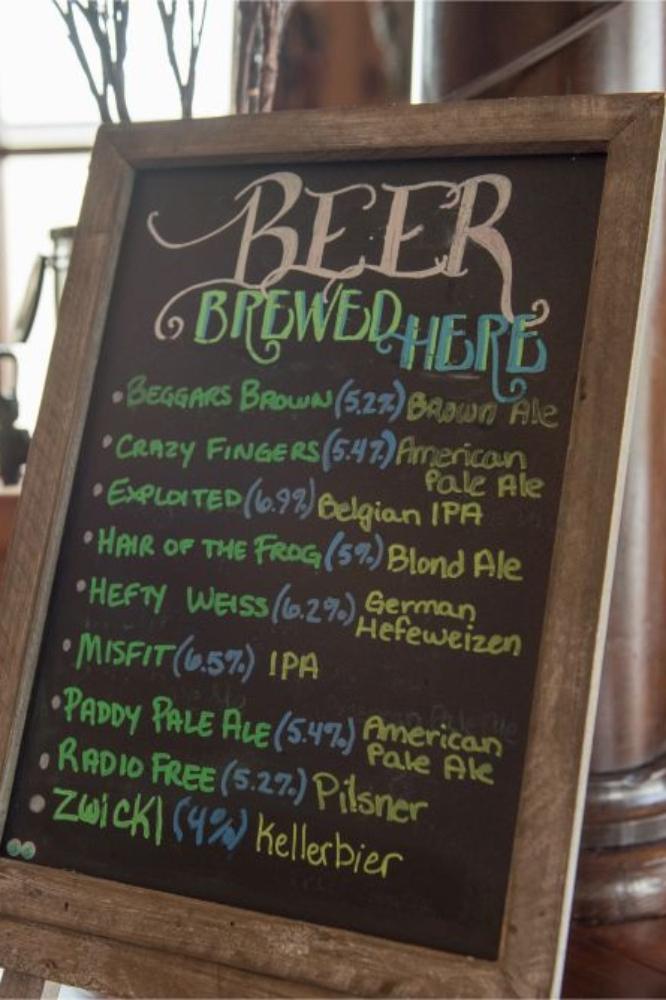 BEER
BREWED HERE
• BEGGARS BROWN (5.2%) Brown Ale
• CRAZY FINGERS (5.4%) American
Pale Ale
• EXPLOITED (6.9%) Belgian IPA
• HAIR OF THE FROG (5%) Blond Ale
• HEFTY WEISS (6.2%) German
Hefeweizen
• MISFIT (6.5%) IPA
• PADDY PALE ALE (5.4%) American
Pale Ale
• RADIO FREE (5.2%) Pilsner
• ZWICKl (4%) Kellerbier